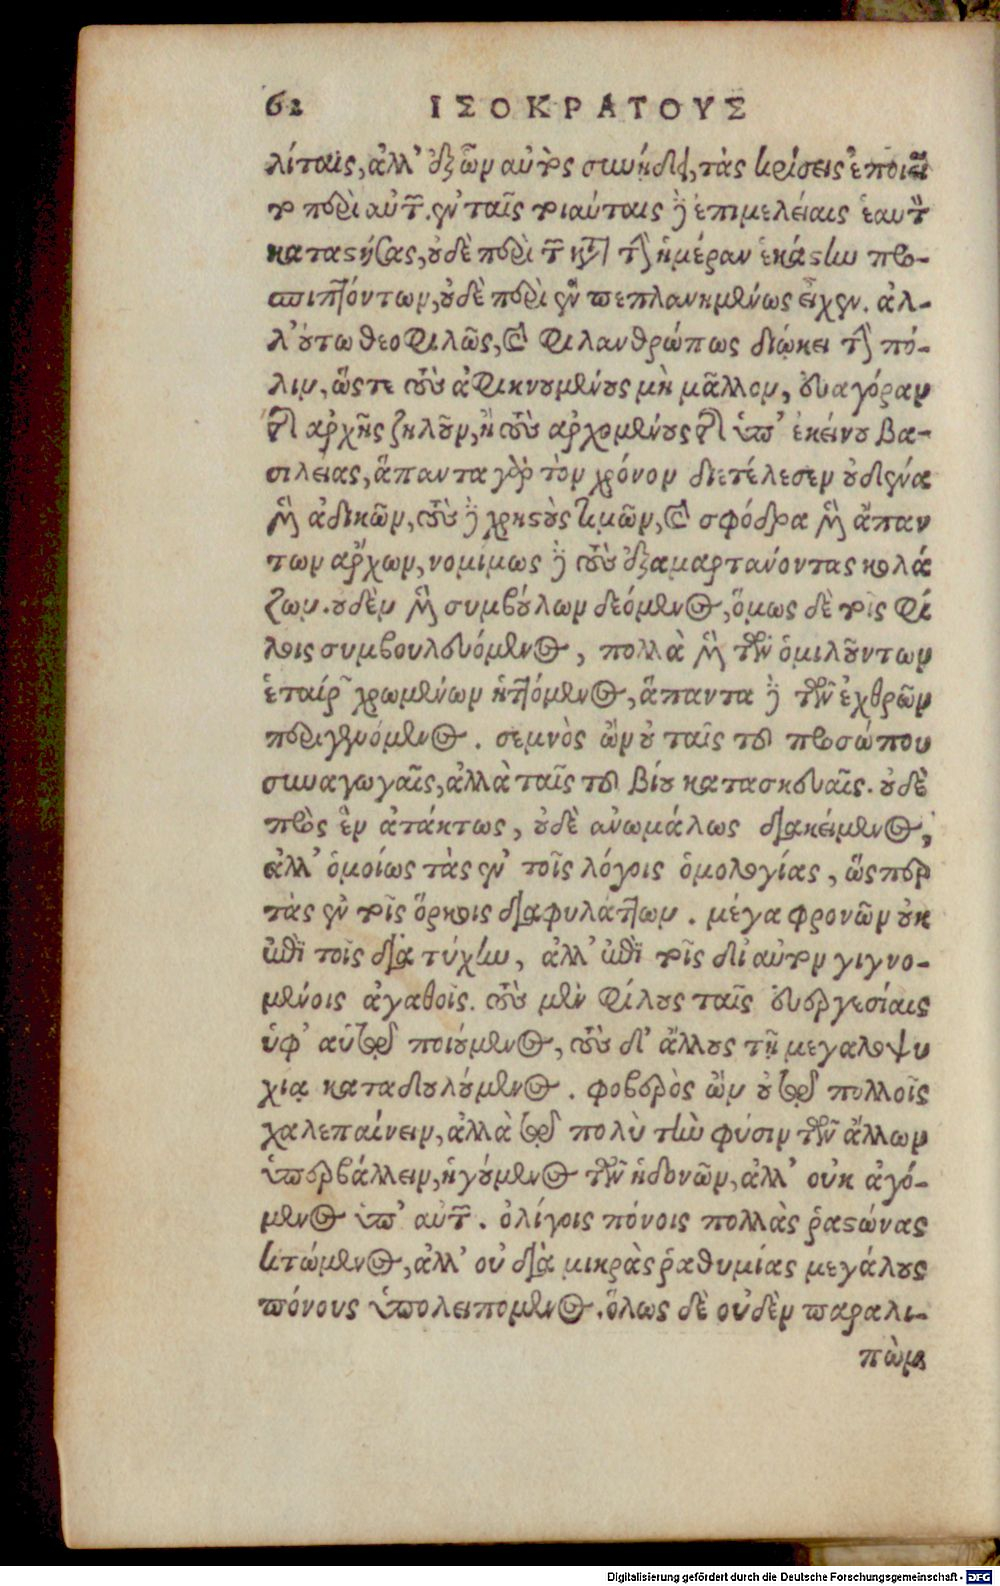 62 ΙΣΟΚΡΑΤΟΥΣ
λίταις, ἀλλ’ ἐξ ὧν αὐτὸς συνῄδει, τὰς κρίσεις ἐποιεῖ
το περὶ αὐτῶν. ἐν ταῖς τοιαύταις δὲ ἐπιμελείαις ἑαυτὸν
καταστήσας, οὐδὲ περὶ τῶν κατὰ τὴν ἡμέραν ἑκάστην προ-
σπιπτόντων, οὐδὲ περὶ ἓν πεπλανημένως εἶχεν. ἀλ-
λ’ οὕτω θεοφιλῶς, καὶ φιλανθρώπως διῴκει τὴν πό-
λιν, ὥστε τοὺς ἀφικνουμένους μὴ μᾶλλον, εὐαγόραν
τῆς ἀρχῆς ζηλοῦν, ἢ τοὺς ἀρχομένους τῆς ὑπ’ ἐκείνου βα-
σιλείας, ἅπαντα γὰρ τὸν χρόνον διετέλεσεν οὐδένα
μὲν ἀδικῶν, τοὺς δὲ χρηστοὺς τιμῶν, καὶ σφόδρα μὲν ἅπαν
των ἄρχων, νομίμως δὲ τοὺς ἐξαμαρτάνοντας κολά
ζων. οὐδὲν μὲν συμβούλων δεόμενος, ὅμως δὲ τοῖς φί
λοις συμβουλευόμενος, πολλὰ μὲν τῶν ὁμιλούντων
ἑταίρων χρωμένων ἡττόμενος, ἅπαντα δὲ τῶν ἐχθρῶν
περιγενόμενος. σεμνὸς ὢν οὐ ταῖς τοῦ προσώπου
συναγωγαῖς, ἀλλὰ ταῖς τοῦ βίου κατασκευαῖς. οὐδὲ
πρὸς ἓν ἀτάκτως, οὐδὲ ἀνωμάλως διακείμενος,
ἀλλ’ ὁμοίως τὰς ἐν τοῖς λόγοις ὁμολογίας, ὥσπερ
τὰς ἐν τοῖς ὅρκοις διαφυλάττων. μέγα φρονῶν οὐκ
ἐπὶ τοῖς διὰ τύχην, ἀλλ’ ἐπὶ τοῖς δι’ αὐτὸν γιγνο-
μένοις ἀγαθοῖς. τοὺς μὲν φίλους ταῖς εὐεργεσίαις
ὑφ’ αὑτῷ ποιούμενος, τοὺς δ’ ἄλλους τῇ μεγαλοψυ
χίᾳ καταδουλούμενος. φοβερὸς ὢν οὐ τῷ πολλοῖς
χαλεπαίνειν, ἀλλὰ τῷ πολὺ τὴν φύσιν τῶν ἄλλων
ὑπερβάλλειν, ἡγούμενος τῶν ἡδονῶν, ἀλλ’ οὐκ ἀγό-
μενος ὑπ’ αὐτῶν. ὀλίγοις πόνοις πολλὰς ῥαστώνας
κτώμενος, ἀλλ’ οὐ διὰ μικρὰς ῥαθυμίας μεγάλους
πόνους ὑπολειπόμενος. ὅλως δὲ οὐδὲν παραλι-
πὼν
Digitalisierung gefördert durch die Deutsche Forschungsgemeinschaft - DFG